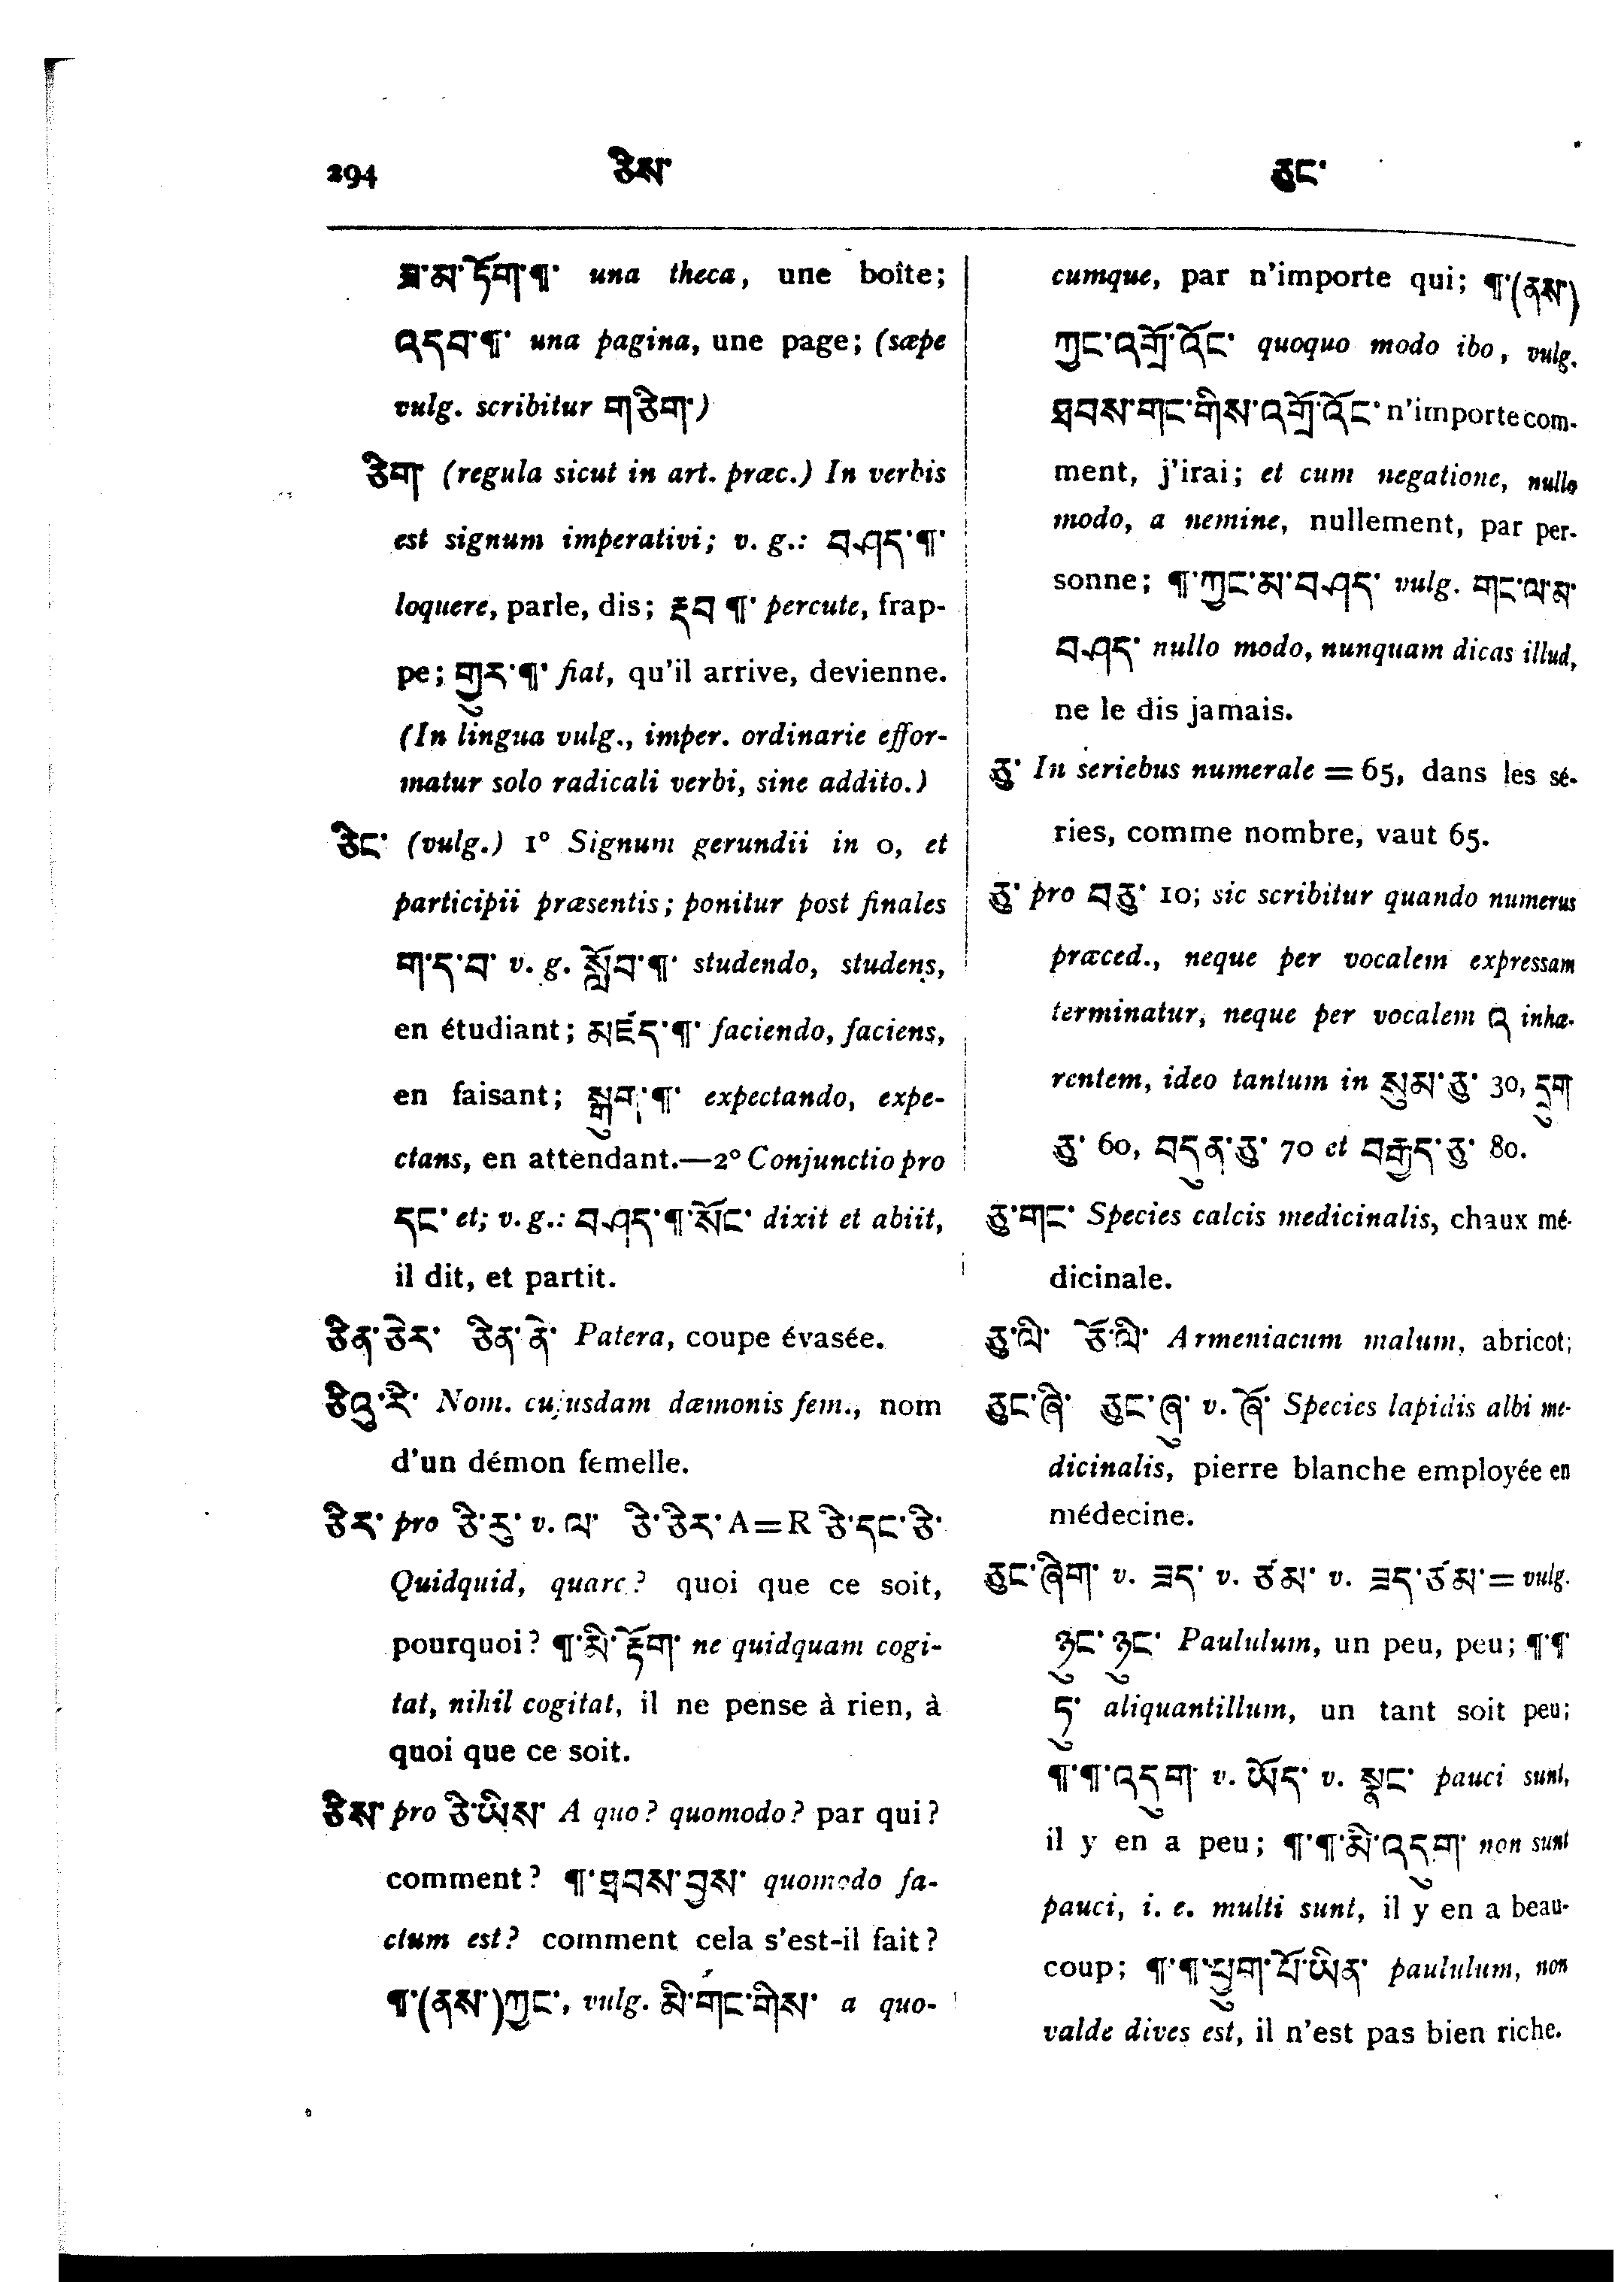 294 ཅིས་ ཅུང་
ཟ་མ་ཏོག་¶་ una theca, une boîte;
འདབ་¶་ una pagina, une page; (sæpe
vulg. scribitur གཅིག་)
ཅིག་ (regula sicut in art. præc.) In verbis
est signum imperativi; v. g.: བཤད་¶་
loquere, parle, dis; རྡབ་¶་ percute, frap-
pe; གྱུར་¶་ fiat, qu'il arrive, devienne.
(In lingua vulg., imper. ordinarie effor-
matur solo radicali verbi, sine addito.)
ཅིང་ (vulg.) 1º Signum gerundii in o, et
participii præsentis; ponitur post finales
ག་ད་བ་ v. g. སློབ་¶་ studendo, studens,
en étudiant; མཛད་¶་ faciendo, faciens,
en faisant; སྒུག་¶་ expectando, expe-
ctans, en attendant.—2º Conjunctio pro
དང་ et; v. g.: བཤད་¶་སོང་ dixit et abiit,
il dit, et partit.
ཅིན་ཅེར་ ཅིན་ནེ་ Patera, coupe évasée.
ཅིའུ་རི་ Nom. cujusdam dæmonis fem., nom
d'un démon femelle.
ཅིར་ pro ཅི་རུ་ v. ལ་ ཅི་ཅིར་ A=R ཅི་དང་ཅི་
Quidquid, quare? quoi que ce soit,
pourquoi? ¶་མི་རྟོག་ ne quidquam cogi-
tat, nihil cogitat, il ne pense à rien, à
quoi que ce soit.
ཅིས་ pro ཅི་ཡིས་ A quo? quomodo? par qui?
comment? ¶་ཐབས་བྱས་ quomodo fa-
ctum est? comment cela s'est-il fait?
¶་(ནས་)ཀྱང་, vulg. མི་གང་གིས་ a quo-
cumque, par n'importe qui; ¶་(ནས་)
ཀྱང་འགྲོ་འོང་ quoquo modo ibo, vulg.
ཐབས་གང་གིས་འགྲོ་འོང་ n'importe com-
ment, j'irai; et cum negatione, nullo
modo, a nemine, nullement, par per-
sonne; ¶་ཀྱང་མ་བཤད་ vulg. གང་ལ་མ་
བཤད་ nullo modo, nunquam dicas illud,
ne le dis jamais.
ཅུ་ In seriebus numerale = 65, dans les sé-
ries, comme nombre, vaut 65.
ཅུ་ pro བཅུ་ 10; sic scribitur quando numerus
præced., neque per vocalem expressam
terminatur, neque per vocalem འ inhæ-
rentem, ideo tantum in སུམ་ཅུ་ 30, དྲུག
ཅུ་ 60, བདུན་ཅུ་ 70 et བརྒྱད་ཅུ་ 80.
ཅུ་གང་ Species calcis medicinalis, chaux mé-
dicinale.
ཅུ་ལི་ ཅོ་ལི་ Armeniacum malum, abricot;
ཅུང་ཞི་ ཅུང་ཞུ་ v. ཞོ་ Species lapidis albi me-
dicinalis, pierre blanche employée en
médecine.
ཅུང་ཞིག་ v. ཟད་ v. ཙམ་ v. ཟད་ཙམ་ = vulg.
ཉུང་ཉུང་ Paululum, un peu, peu; ¶་¶་
ཏུ་ aliquantillum, un tant soit peu;
¶་¶་འདུག་ v. ཡོད་ v. སྣང་ pauci sunt,
il y en a peu; ¶་¶་མི་འདུག་ non sunt
pauci, i. e. multi sunt, il y en a beau-
coup; ¶་¶་ཕྱུག་པོ་ཡིན་ paululum, non
valde dives est, il n'est pas bien riche.